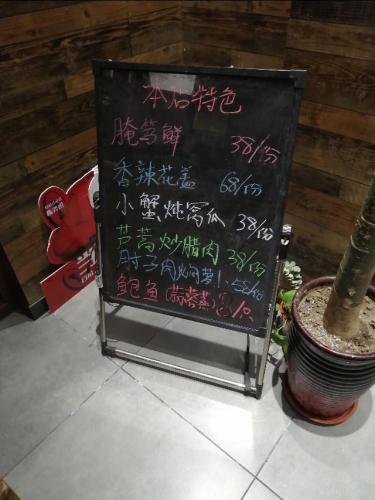 本店特色
腌笃鲜 38/份
香辣花盖 68/份
小蟹烧窝瓜 38/份
芦蒿炒腊肉 38/份
肘子肉焖萝卜 58/份
鲍鱼(蒜蓉蒸)